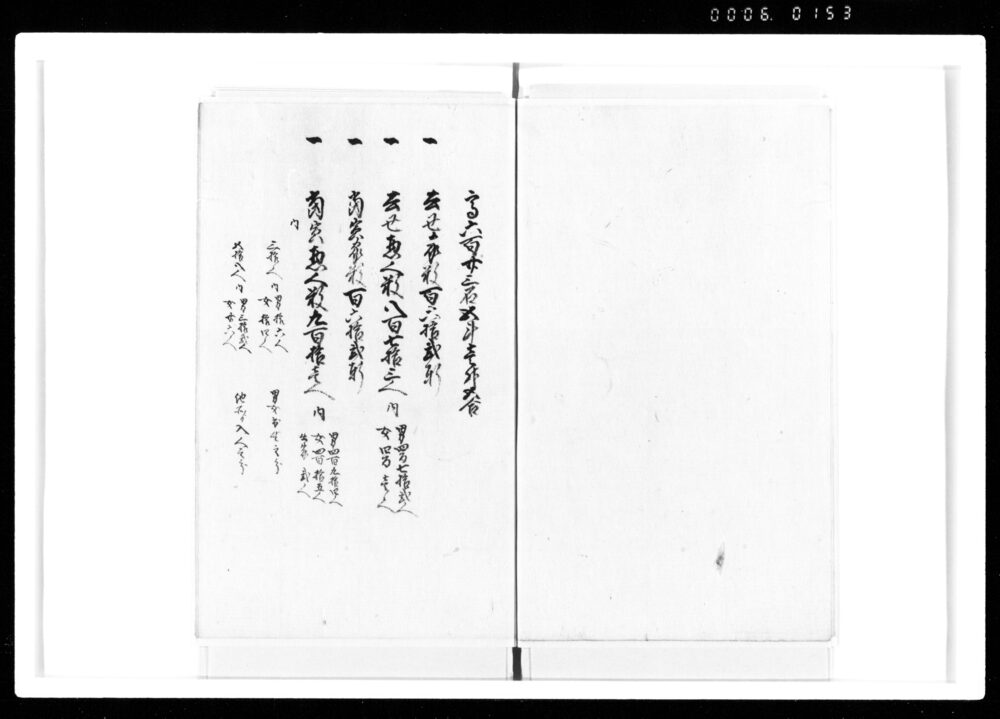 0006. 0153
高六百廿三石四斗壱升四合
一 去丑家数百六拾弐軒
一 去丑惣人数八百七拾三人 内
男四百七拾弐人
女四百壱人
一 当寅家数百六拾弐軒
一 当寅惣人数九百拾壱人 内
男四百九拾四人
女四百拾五人
出家弐人
内
三拾人 内
男拾六人
女拾四人
男女出生之分
五拾八人 内
男三拾弐人
女廿六人
他所より入人之分